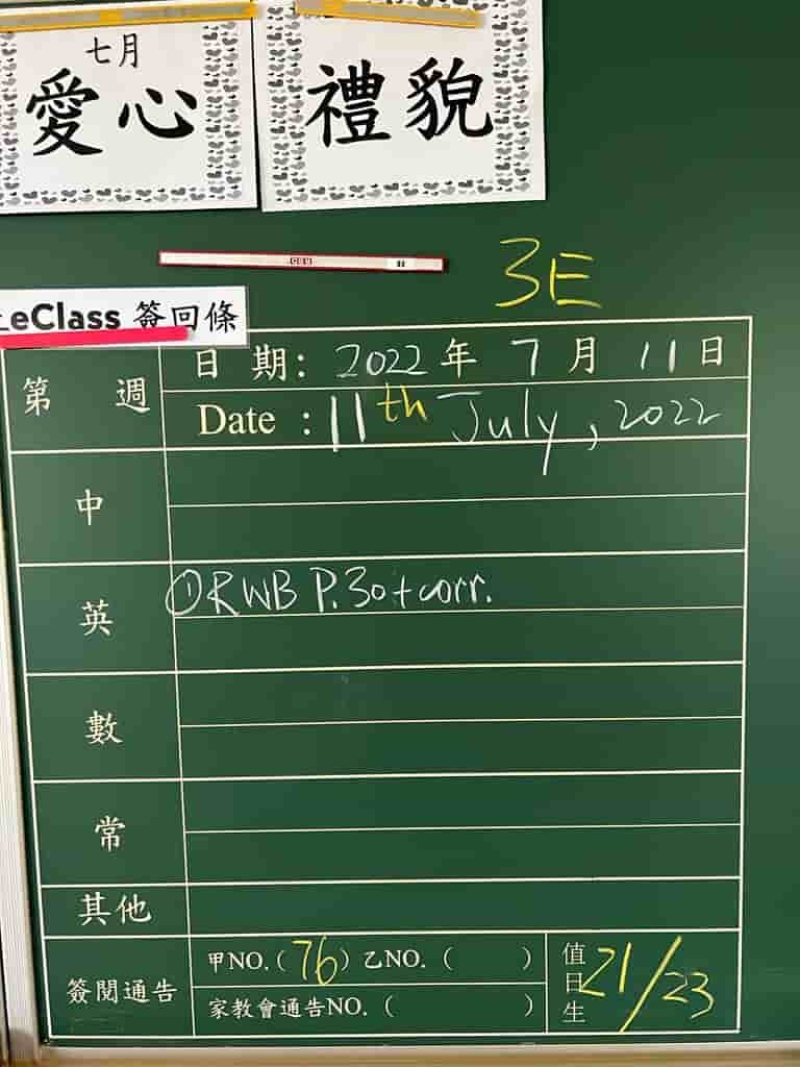 七月
愛心
禮貌
3E
eClass 簽回條
第 週
日 期: 2022 年 7 月 11 日
Date : 11th July, 2022
中
英
① RWB P.30 + corr.
數
常
其他
簽閱通告
甲NO.( 76 ) 乙NO. ( )
家教會通告NO. ( )
值日生
21/23